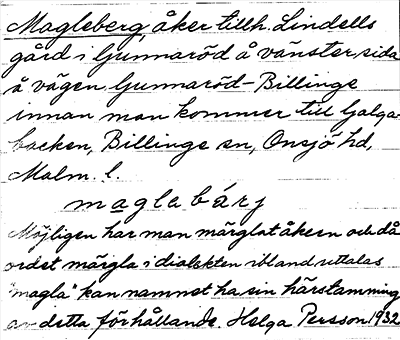 Magleberg, åker tillh. Lindells
gård i Gunnaröd å vänster sida
å vägen Gunnaröd-Billinge
innan man kommer till Galga-
backen, Billinge sn, Onsjö hd,
Malm. l.
maglabárj
Möjligen har man märglat åkern och då
ordet märgla i dialekten ibland uttalas
"magla" kan namnet ha sin härstamning
av detta förhållande. Helga Persson 1932